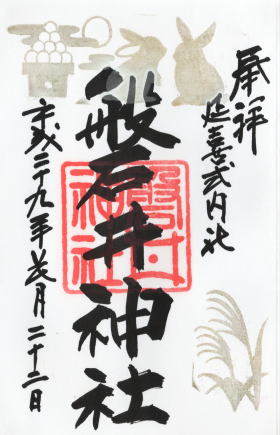 奉拝
延喜式内社
磐井神社
磐井
神社
平成二十九年長月二十二日